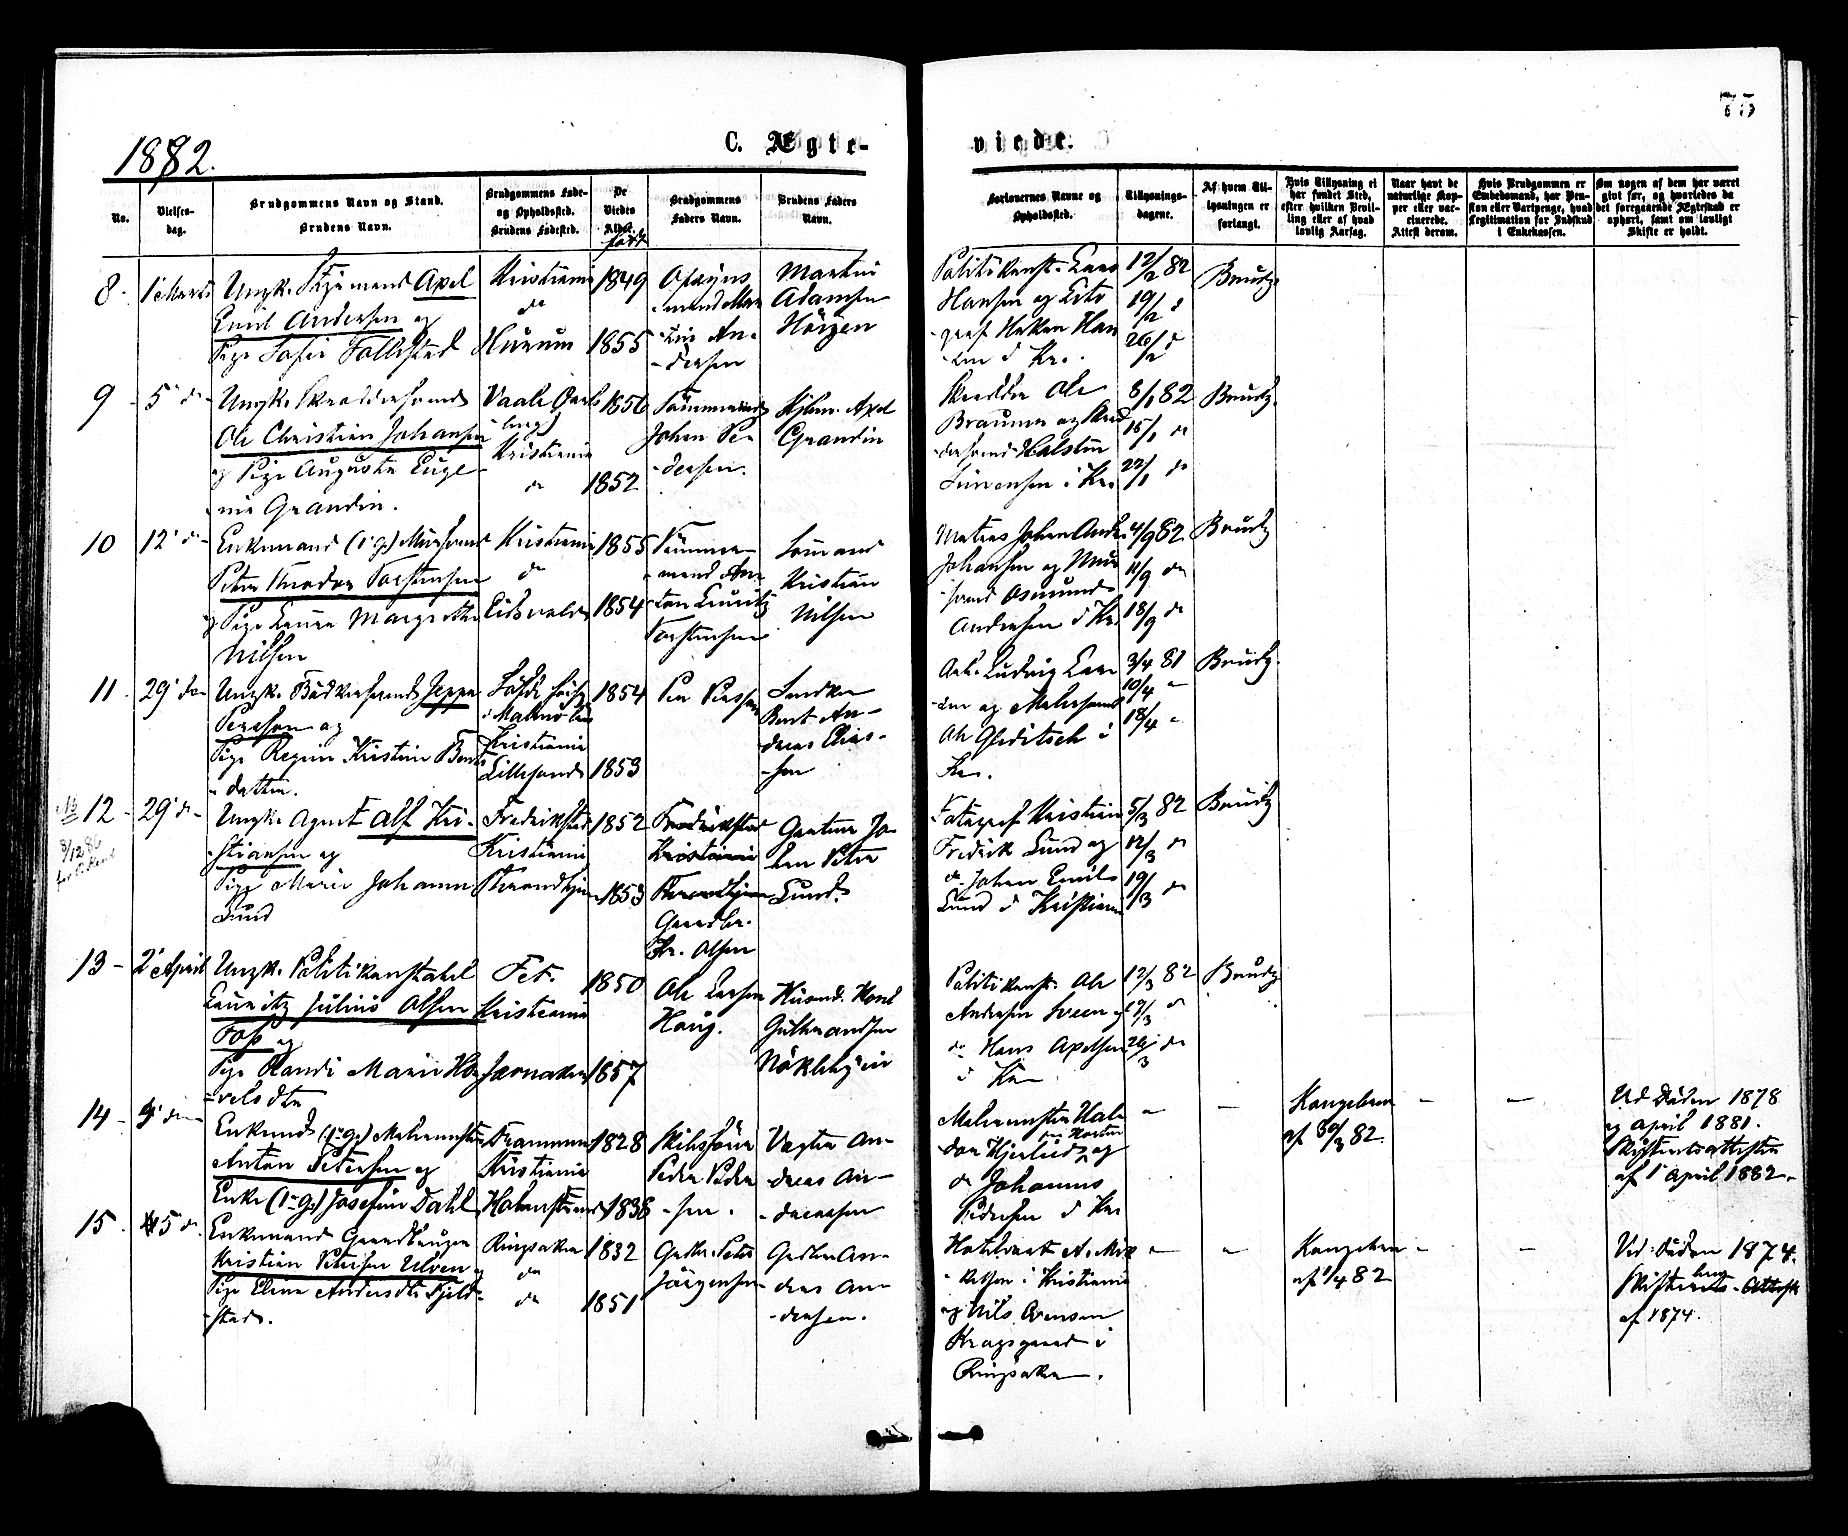 75
1882.
C. Ægte-
viede.
No.
Vielses-
dag.
Brudgommens Navn og Stand.
Brudens Navn.
Brudgommens Føde-
og Opholdssted.
Brudens Fødested.
De
Viedes
Alder.
født
Brudgommens
Faders Navn.
Brudens Faders
Navn.
Forlovernes Navne og
Opholdssted.
Tillysnings-
dagene.
Af hvem Til-
lysningen er
forlangt.
Hvis Tillysning ei
har fundet Sted,
efter hvilken Bevil-
ling eller af hvad
lovlig Aarsag.
Naar havt de
naturlige Kop-
per eller vac-
cinerede.
Attest derom.
Hvis Brudgommen er
Embedsmand, har Pen-
sion eller Vartpenge, hvad
Legitimation for Indskud
i Enkekassen.
Om nogen af dem har været
gift før, og hvorledes da
det foregaaende Ægteskab er
ophørt, samt om lovligt
Skifte er holdt.
8 - 1' Marts
Ungk. Axel
Emil Andersen og
Pige Sofie Follestad
Kristiania
do
Hurum
1849
1855
mand Mar
tin An-
-dersen
Martin
Adamsen
Politikonst. Lars
Hansen og Lito
graf Hakon Han
sen i Kr.
12/2 82
19/2 d
26/2 d
Brudg.
9 - 5' d
Ungk. Skræddersvend
Ole Christian Johansen
og Pige Augusta Euge
nie Grandin.
Vaale Jarls
berg
Kristiania
do
1856
1852
Tømmermd
Johan Pe
dersen.
Axel
Grandin
Skrædder Ole
Braunen og Skræd
dersvend Halstin
Simensen i Kr.
8/1 82
15/1 do
22/1 do
Brudg.
10 12' d
Enkemand (1' g.) Mursvend
Peter Theodor Torstensen
og Pige Laura Margrethe
Nilsen
Kristiania
do
Eidsvold
1855
1854
Tømmer-
mand An
ton Lauritz
Torstensen
Sømand
Kristian
Nilsen
Matros Johan Andr.
Johansen og Mur
svend Osmund
Andersen i Kr.
4/9 82
11/9 do
18/9 do
Brudg
11 - 29' do
Ungk. Bødkersvend Jeppa
Persson og
Pige Regine Kristine Bents
datter.
i Malmø Len
Kristiania
Lillesand
1854
1853
Per Persson
Snedker
Bent An-
dreas Elias-
sen
Arb. Ludvig Lar
sen og Malersvend
Ole Gleditsch i
Kr.
3/4 81
10/4 -
18/4 -
Brudg.
12 - 29' d
Ungk. Agent Alf Kri-
stiansen og
Pige Marie Johanne
Lund
Fredrikstad
Kristiania
Throndhjem
1852
1853
Fredrikstad
Kristiania
Throndhjem
Gaardbr.
Kr. Olsen
Gartner Jo-
han Peter
Lund.
Fotograf Kristian
Fredrik Lund og
do Johan Emil
Lund i Kristiania
5/3 82
12/3 do
19/3 do
Brudg
13 - 2' April
Ungk. Politikonstabel
Lauritz Julius Olsen
Foss og
Pige Randi Marie Ha
velsdtr
Fet.
Kristiania
Jevnaker
1850
1857
Ole Larsen
Haug.
Husmd. Havel
Gulbrandsen
Nøklebyeie
Politikonst. Ole
Andersen Sveen og
do Hans Axelsen
i Kr
12/3 82
19/3 do
26/3 do
Brudg
14 - 5' do
Enkemd (1' g.) Malermester
Anton Petersen og
Enke (1' g.) Josefine Dahl
Drammen
Kristiania
Holmestrand
1828
1838
Skibsfører
Peder Peder
sen.
Vagter An-
dreas An-
dreassen
Malermester Hal
dor Hjerlied og
do Johannes
Pedersen i Kr
- - Kongebrev
af 30/3 82. - -
Ved Døden 1878
og April 1881.
Skifteretsattester
af 1' April 1882.
15 - 5 d.
Enkemand Gaardbruger
Kristian Petersen Ulven og
Pige Eline Andersdtr Fjeld-
stad.
Ringsaker
do
do
1832
1851
Gaardbr. Peter
Jørgensen
Gaardbr. An-
ders An-
dersen.
Hotelvært A. Mik
kelsen i Kristiania
og Nils Evensen
Kragsgaard i
Ringsaker.
- - Kongebrev
af 1/4 82 - -
Ved Døden 1874.
Skifterets-Attest
af 1874.